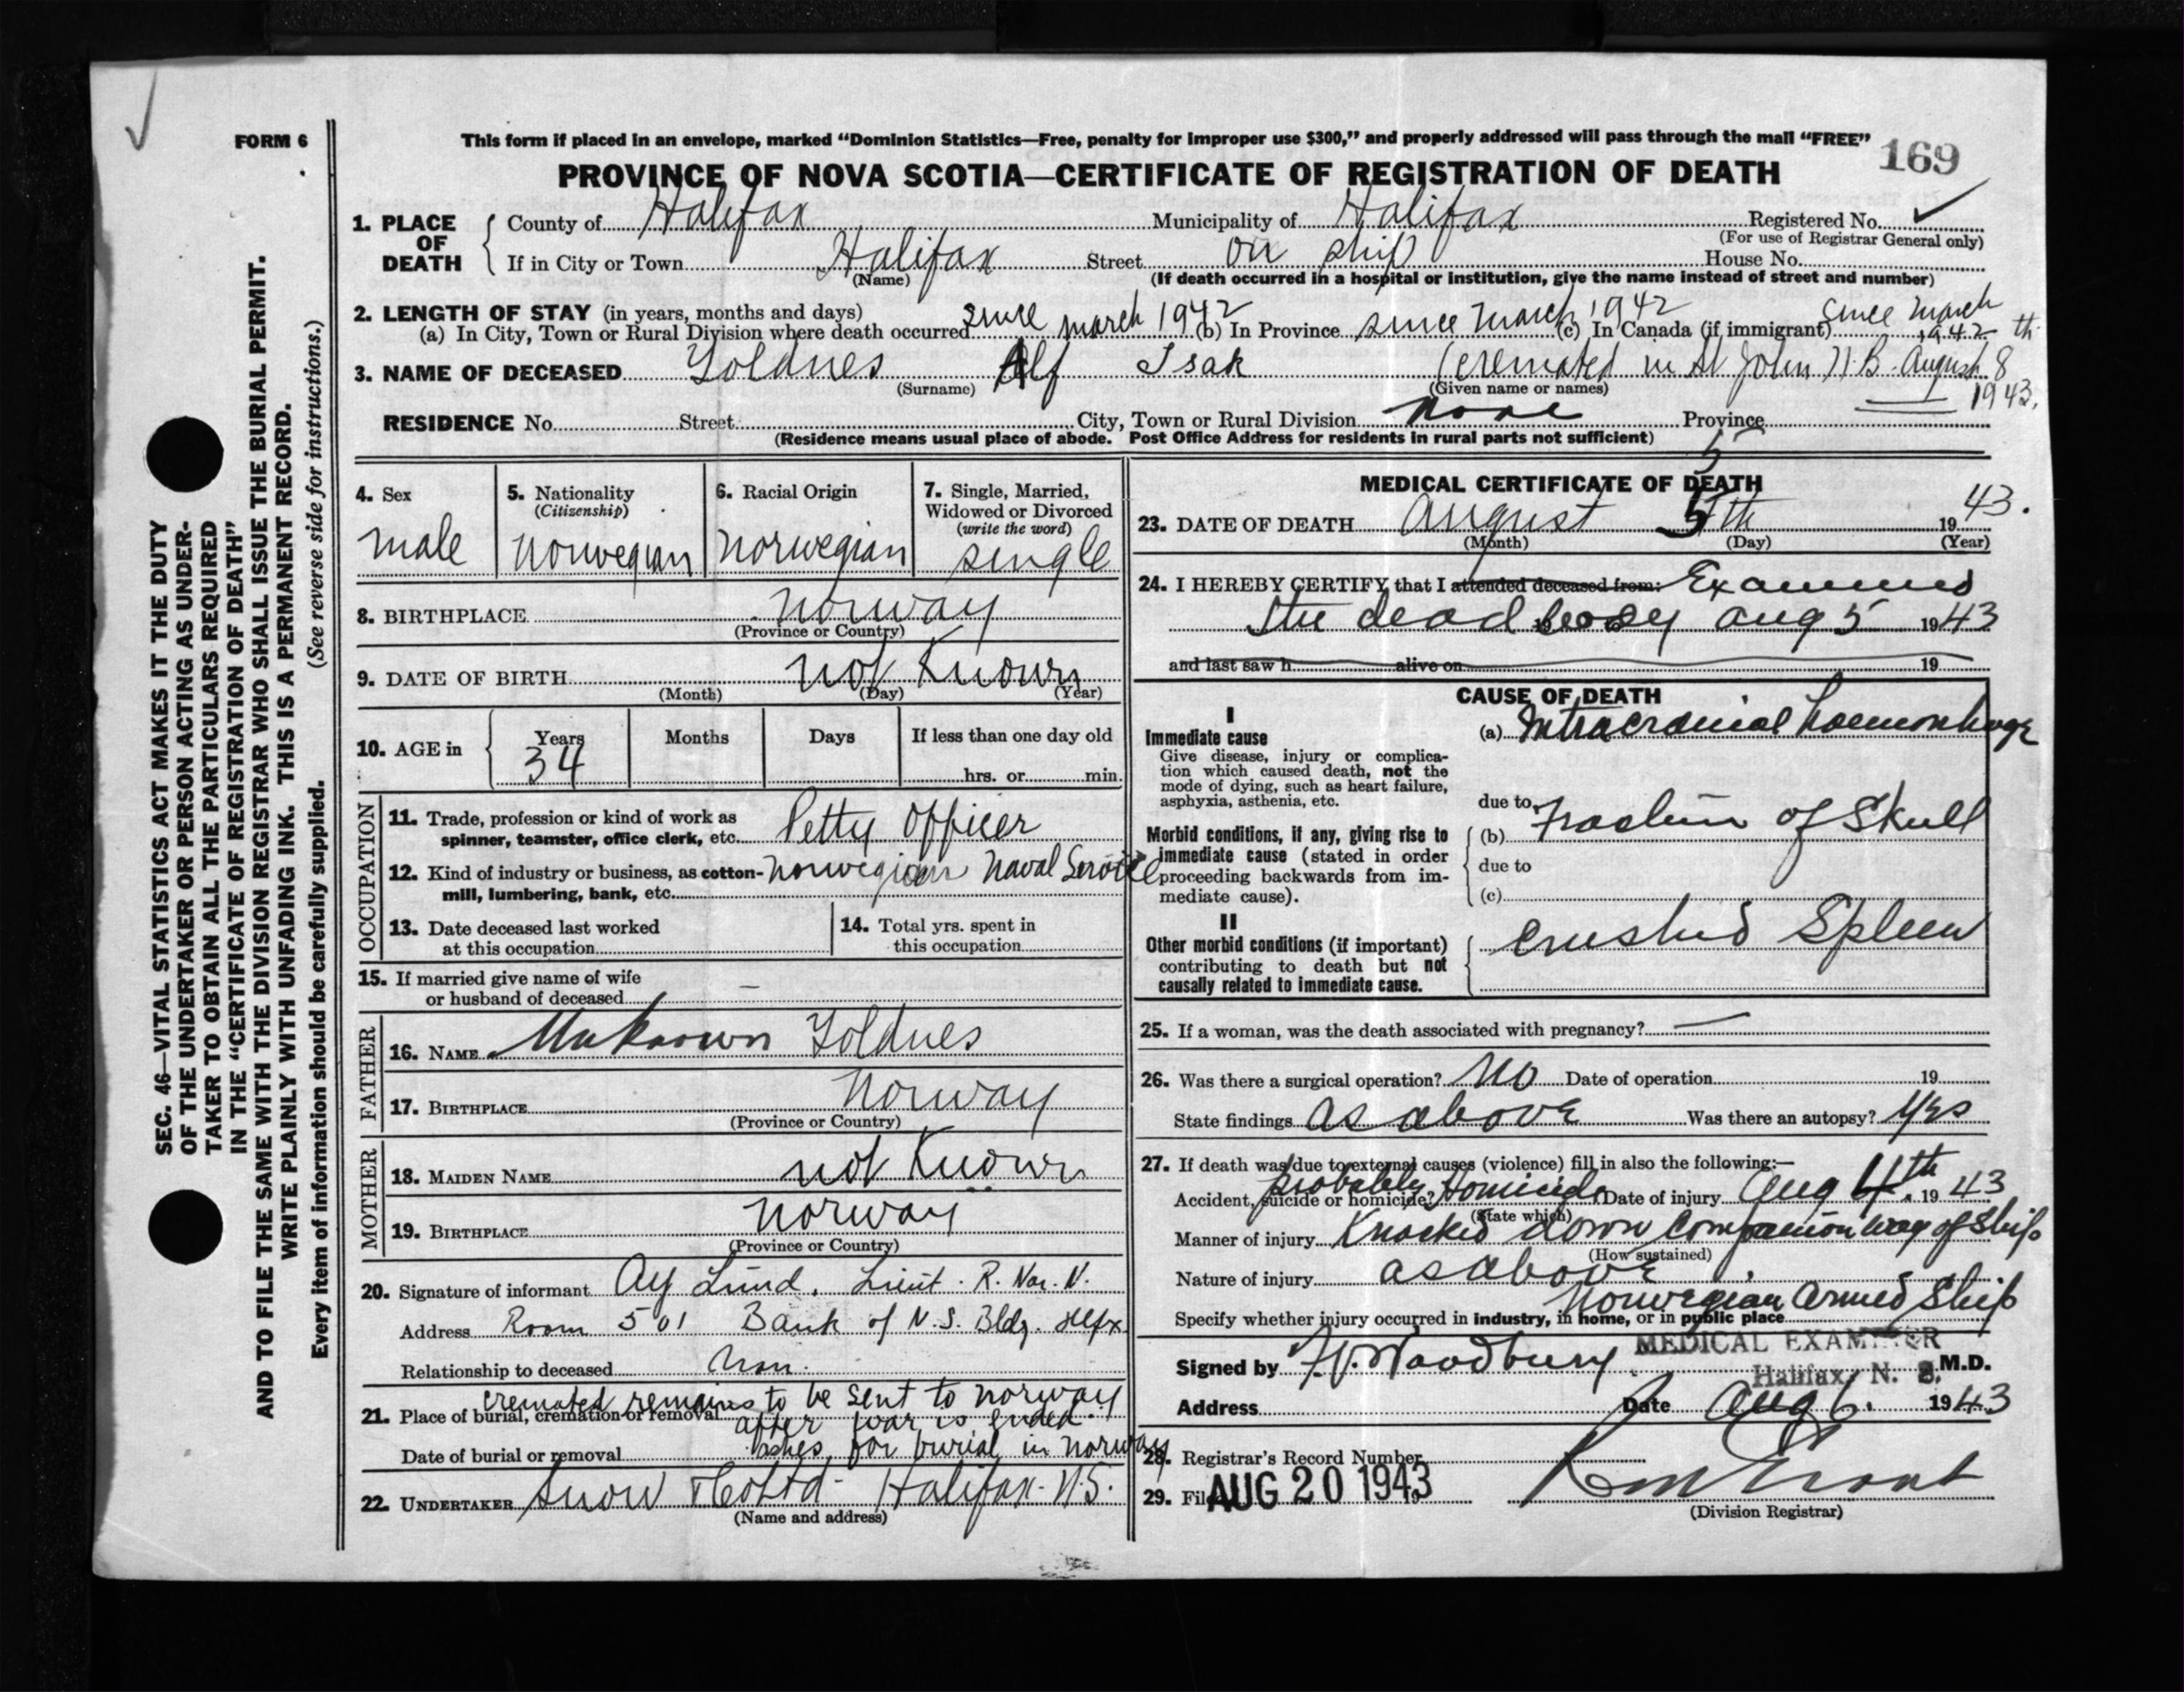 FORM 6
This form if placed in an envelope, marked “Dominion Statistics—Free, penalty for improper use $300,” and properly addressed will pass through the mail “FREE”
169
PROVINCE OF NOVA SCOTIA—CERTIFICATE OF REGISTRATION OF DEATH
1. PLACE OF DEATH
County of Halifax Municipality of Halifax Registered No.
(For use of Registrar General only)
If in City or Town Halifax Street on ship House No.
(Name) (If death occurred in a hospital or institution, give the name instead of street and number)
2. LENGTH OF STAY (in years, months and days)
(a) In City, Town or Rural Division where death occurred since march 1942 (b) In Province since march 1942 (c) In Canada (if immigrant) since march 1942
3. NAME OF DECEASED Yoldnes Alf Isak (cremated in St John N.B. August 8th 1943.
(Surname) (Given name or names)
RESIDENCE No. Street. City, Town or Rural Division none Province
(Residence means usual place of abode. Post Office Address for residents in rural parts not sufficient)
4. Sex
male
5. Nationality
(Citizenship)
norwegian
6. Racial Origin
norwegian
7. Single, Married,
Widowed or Divorced
(write the word)
single
8. BIRTHPLACE norway
(Province or Country)
9. DATE OF BIRTH not Known
(Month) (Day) (Year)
10. AGE in Years Months Days If less than one day old
34 hrs. or min.
OCCUPATION
11. Trade, profession or kind of work as
spinner, teamster, office clerk, etc. Petty Officer
12. Kind of industry or business, as cotton-
mill, lumbering, bank, etc. norwegian Naval Service
13. Date deceased last worked
at this occupation
14. Total yrs. spent in
this occupation
15. If married give name of wife
or husband of deceased —
FATHER
16. NAME Unknown Yoldnes
17. BIRTHPLACE Norway
(Province or Country)
MOTHER
18. MAIDEN NAME not Known
19. BIRTHPLACE norway
(Province or Country)
20. Signature of informant Lund, Lieut. R. Nor. N.
Address Room 501 Bank of N.S. Bldg. Hlfx
Relationship to deceased Non.
21. Place of burial, cremation or removal cremated remains to be sent to norway
after war is ended.
Date of burial or removal ashes for burial in norway
22. UNDERTAKER Snow & Co Ltd - Halifax - N.S.
(Name and address)
MEDICAL CERTIFICATE OF DEATH
5
23. DATE OF DEATH August 5th 1943.
(Month) (Day) (Year)
24. I HEREBY CERTIFY that I attended deceased from: Examined
the dead body aug 5 1943
and last saw h alive on 19
CAUSE OF DEATH
I
Immediate cause
Give disease, injury or complica-
tion which caused death, not the
mode of dying, such as heart failure,
asphyxia, asthenia, etc.
(a) Intracranial haemorrhage
due to
Morbid conditions, if any, giving rise to
immediate cause (stated in order
proceeding backwards from im-
mediate cause).
(b) Fracture of Skull
due to
(c)
II
Other morbid conditions (if important)
contributing to death but not
causally related to immediate cause.
crushed Spleen
25. If a woman, was the death associated with pregnancy? —
26. Was there a surgical operation? No Date of operation 19
State findings as above Was there an autopsy? Yes
27. If death was due to external causes (violence) fill in also the following:—
Accident, suicide or homicide? probably Homicide Date of injury Aug 4th. 1943
(State which)
Manner of injury Knocked down Companion way of Ship
(How sustained)
Nature of injury as above
Norwegian Armed Ship
Specify whether injury occurred in industry, in home, or in public place
Signed by Woodbury MEDICAL EXAMINER
Halifax, N. S. M.D.
Address Date Aug 6. 1943
28. Registrar's Record Number
29. Fil AUG 20 1943
(Division Registrar)
SEC. 46—VITAL STATISTICS ACT MAKES IT THE DUTY
OF THE UNDERTAKER OR PERSON ACTING AS UNDER-
TAKER TO OBTAIN ALL THE PARTICULARS REQUIRED
IN THE “CERTIFICATE OF REGISTRATION OF DEATH”
AND TO FILE THE SAME WITH THE DIVISION REGISTRAR WHO SHALL ISSUE THE BURIAL PERMIT.
WRITE PLAINLY WITH UNFADING INK. THIS IS A PERMANENT RECORD.
Every item of information should be carefully supplied. (See reverse side for instructions.)